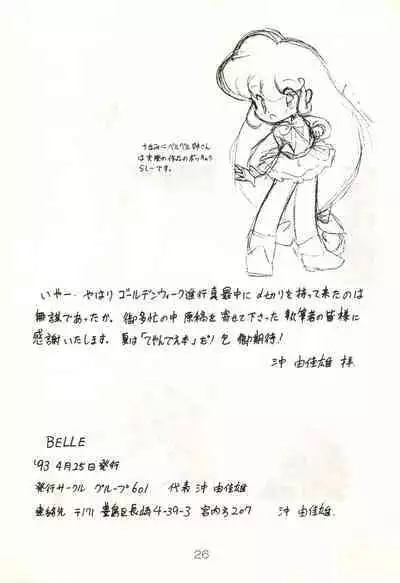 ちなみにベルゲル姉さん
は実際の作品のボツキャラ
らしーです。
いやー・やはりゴールデンウィーク進行真最中に〆切りを持って来たのは
無謀であったか。御多忙の中 原稿を寄せて下さった執筆者の皆様に
感謝いたします。夏は「てやんでえ本」だ! 乞 御期待!
沖 由佳雄 拝
BELLE
'93 4月25日発行
発行サークル グループ601 代表 沖 由佳雄
連絡先 〒171 豊島区長崎4-39-3 宮内方207 沖 由佳雄
26